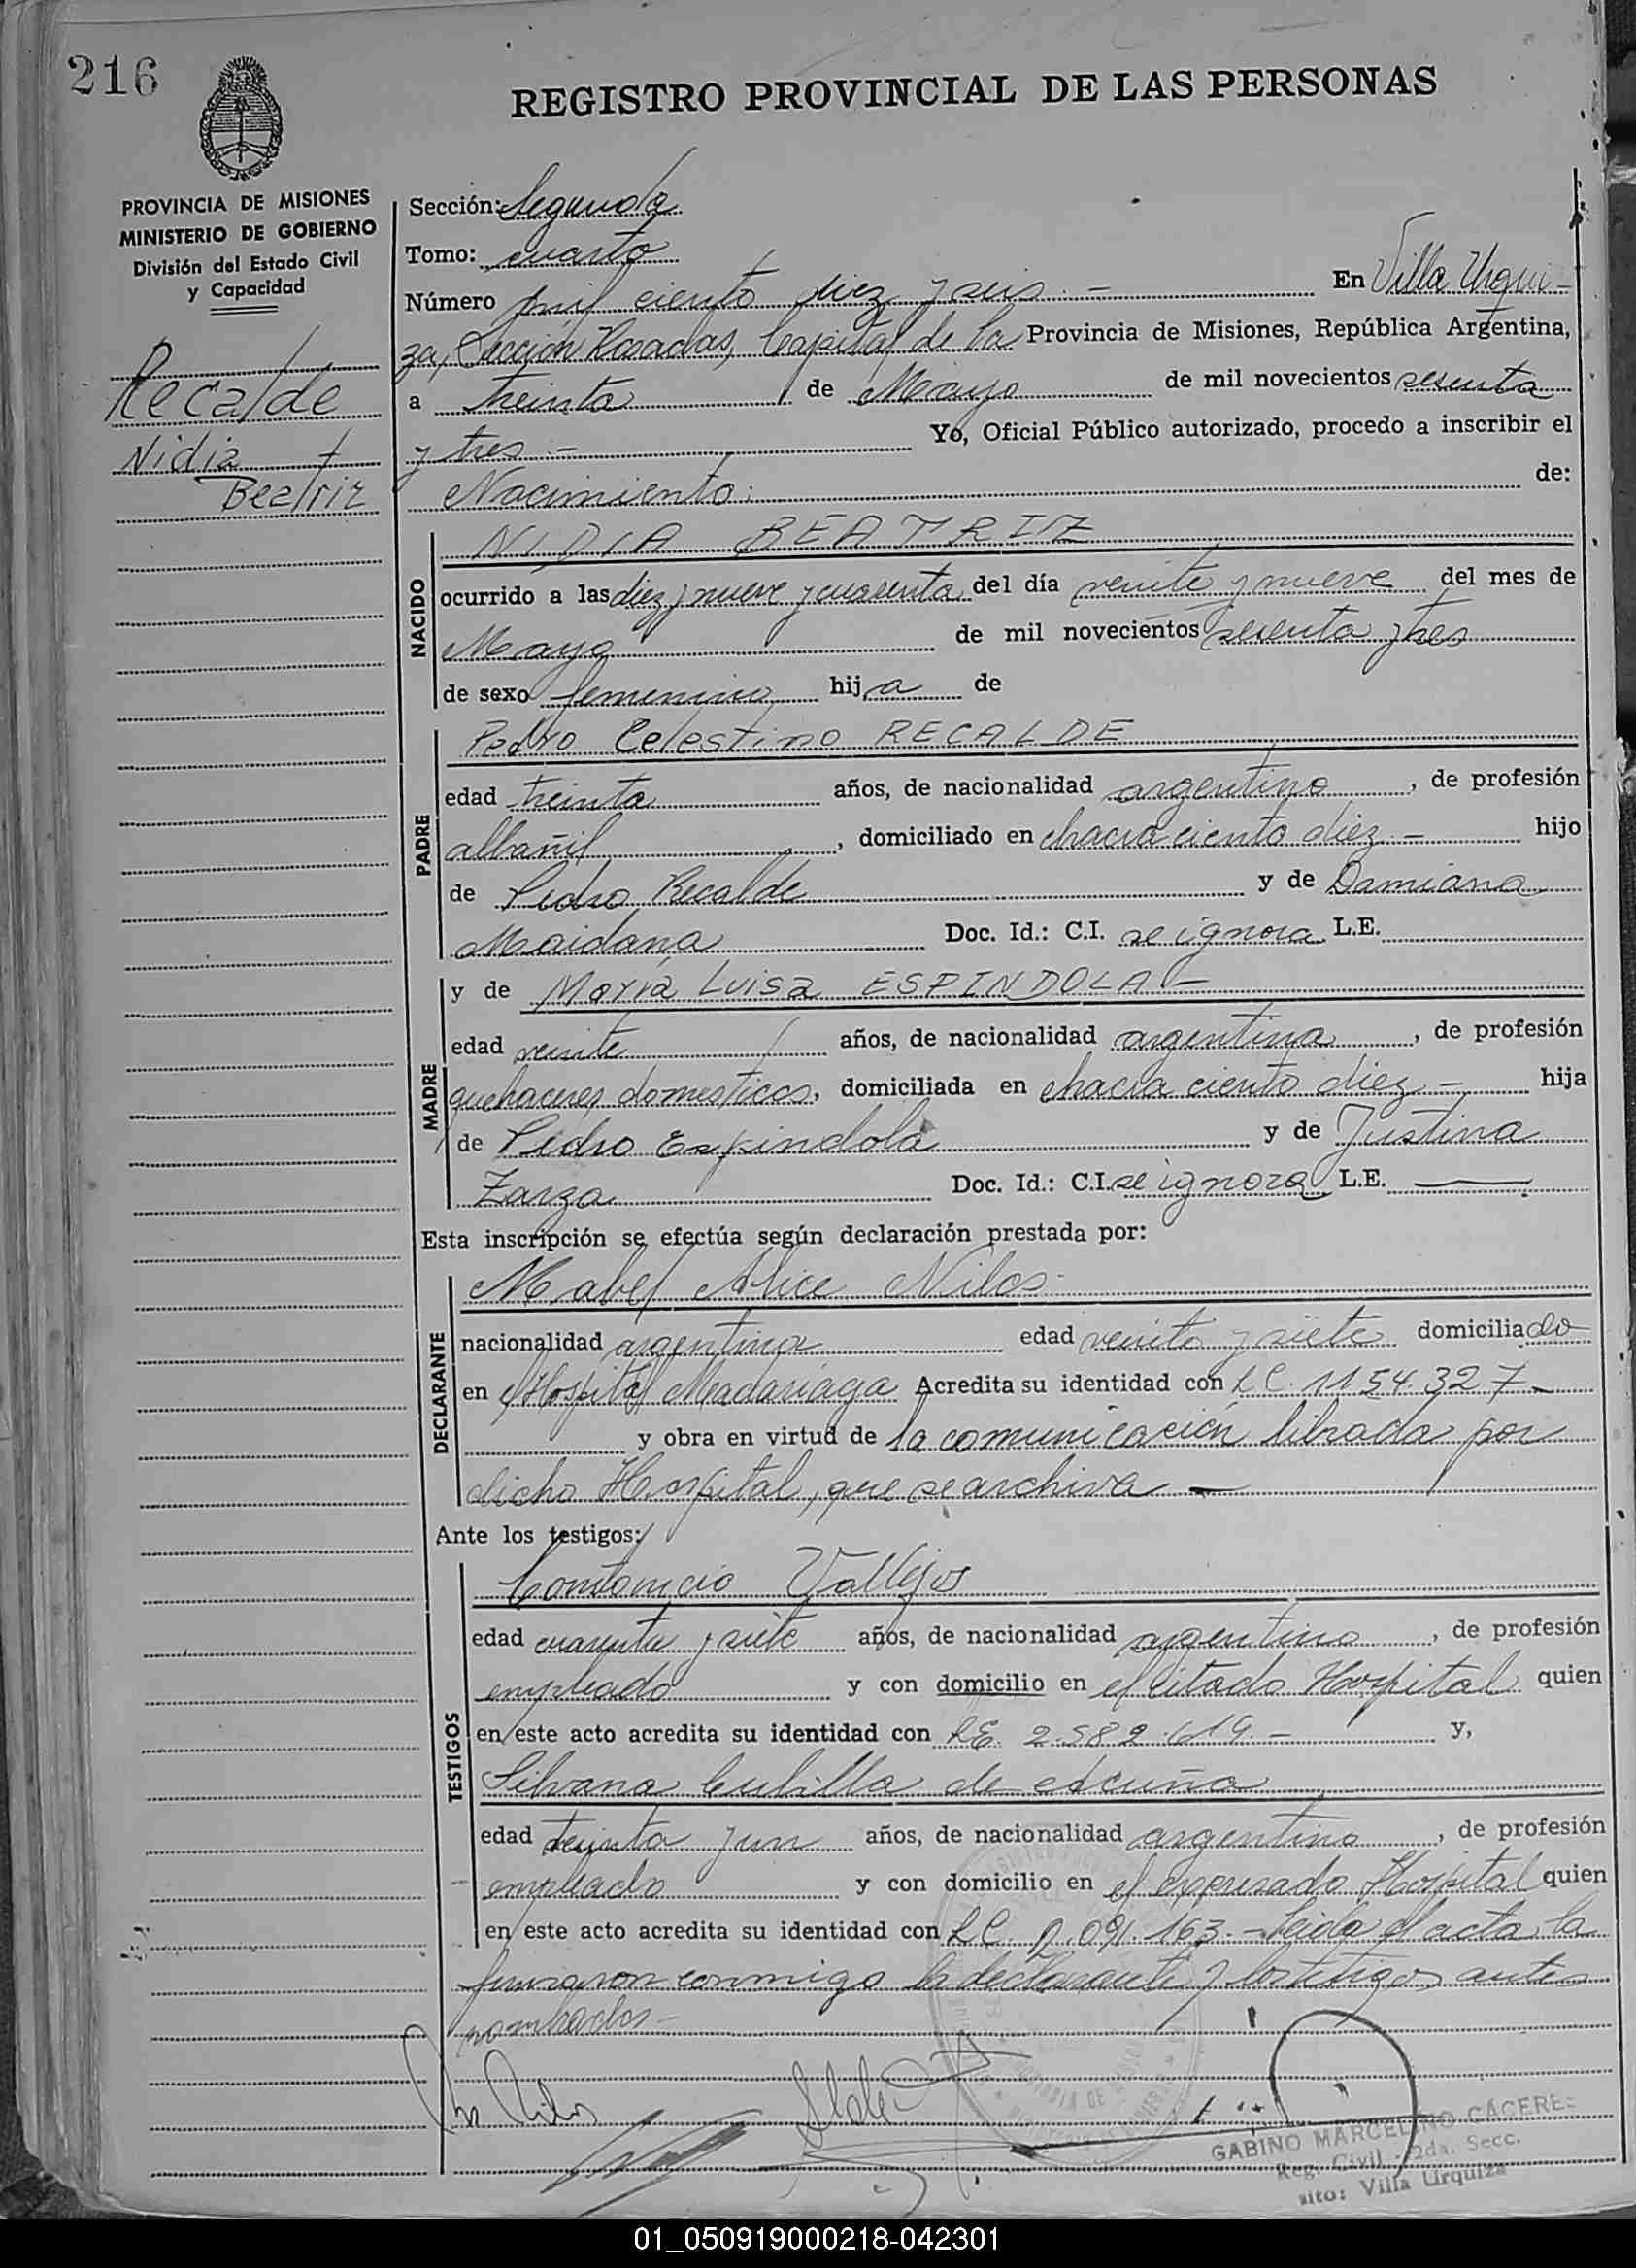 216
REGISTRO PROVINCIAL DE LAS PERSONAS
PROVINCIA DE MISIONES
MINISTERIO DE GOBIERNO
División del Estado Civil
y Capacidad
Recalde
Nidia
Beatriz
Sección: Segunda
Tomo: cuarto
Número mil ciento diez y seis. — En Villa Urqui-
za, Sección Posadas, Capital de la Provincia de Misiones, República Argentina,
a treinta de Mayo de mil novecientos sesenta
y tres. — Yo, Oficial Público autorizado, procedo a inscribir el
Nacimiento: de:
NACIDO
NIDIA BEATRIZ
ocurrido a las diez y nueve y cuarenta del día veinte y nueve del mes de
Mayo de mil novecientos sesenta y tres
de sexo femenino hija de
PADRE
Pedro Celestino RECALDE
edad treinta años, de nacionalidad argentino, de profesión
albañil, domiciliado en chacra ciento diez. — hijo
de Pedro Recalde y de Damiana
Maidana Doc. Id.: C.I. se ignora L.E.
MADRE
y de María Luisa ESPINDOLA —
edad veinte años, de nacionalidad argentina, de profesión
quehaceres domesticos, domiciliada en chacra ciento diez — hija
de Pedro Espindola y de Justina
Zarza Doc. Id.: C.I. se ignora L.E. —
Esta inscripción se efectúa según declaración prestada por:
DECLARANTE
Mabel Alice Nilos
nacionalidad argentina edad veinte y siete domiciliado
en Hospital Madariaga Acredita su identidad con L.C. 1154.327 —
y obra en virtud de la comunicación librada por
dicho Hospital, que se archiva —
Ante los testigos:
TESTIGOS
Constancio Vallejos
edad cuarenta y siete años, de nacionalidad argentino, de profesión
empleado y con domicilio en el citado Hospital quien
en este acto acredita su identidad con L.E. 2.582.619. — y,
Silvana Cubilla de
edad treinta y un años, de nacionalidad argentino, de profesión
empleado y con domicilio en el expresado Hospital quien
en este acto acredita su identidad con L.C. 2.091.163. — Leida el acta la
firmaron conmigo la declarante y los testigos antes
nombrados —
GABINO MARCELINO CACERES
Reg. Civil - 2da. Secc.
Villa Urquiza
01_050919000218-042301